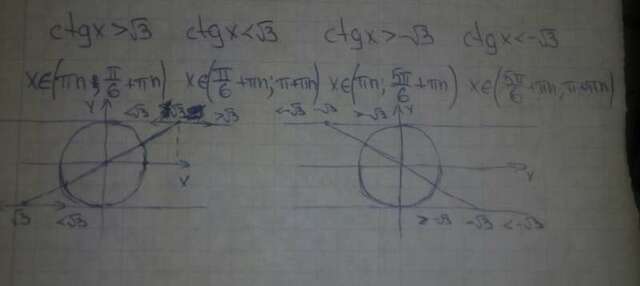 ctgx>√3 ctgx<√3 ctgx>-√3 ctgx<-√3
x∈(πn; π/6+πn) x∈(π/6+πn; π+πn) x∈(πn; 5π/6+πn) x∈(5π/6+πn; π+πn)
y <√3 √3 >√3 <-√3 -√3 >-√3 y
x x
√3 <√3 >-√3 -√3 <-√3